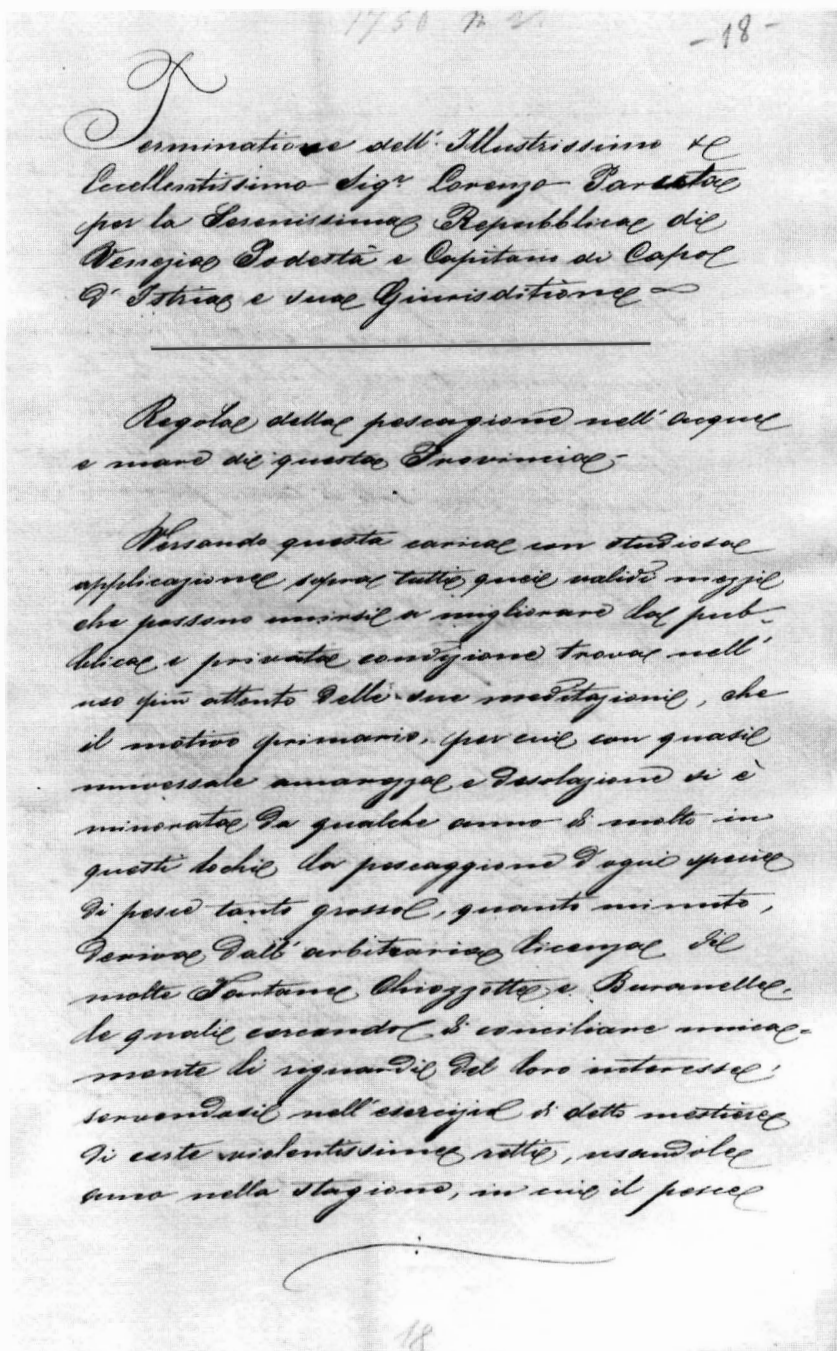 - 18 -
Terminatione dell' Illustrissimo &
Eccellentissimo Sigr Lorenzo Paruta
per la Serenissima Repubblica di
Venezia Podestà e Capitano di Capo
d' Istria e sua Giurisditione
Regola della pescagione nell' acque
e mare di questa Provincia -
Versando questa carica con studiosa
applicazione sopra tutti quei validi mezzi
che possono unirsi a migliorare la pub-
blica e privata condizione trova nell'
uso più attento delle sue meditazioni, che
il motivo primario, per cui con quasi
universale amarezza e desolazione si è
minorata da qualche anno di molto in
questi lochi la pescaggione d'ogni specie
di pesce tanto grosso, quanto minuto,
deriva dall' arbitraria licenza di
molte Tartane Chiozzotte e Buranelle,
le quali cercando di conciliare unica-
mente li riguardi del loro interesse,
servendosi nell'esercizio di detto mestiere
di certe violentissime retti, usandole
anco nella stagione, in cui il pesce
18